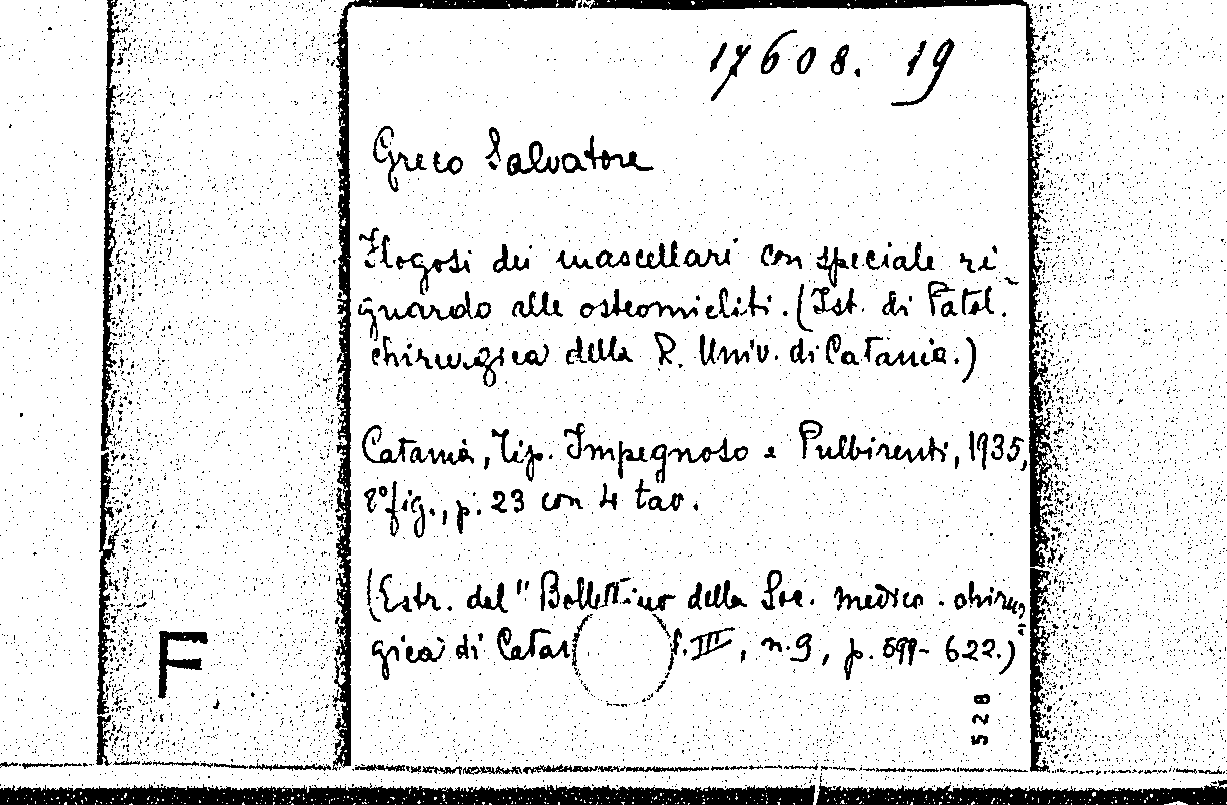 17608. 19
Greco Salvatore
Flogosi dei mascellari con speciale ri-
guardo alle osteomieliti. (Ist. di Patol.
chirurgica della R. Univ. di Catania.)
Catania, Tip. Impegnoso e Pulbirenti, 1935,
8° fig., p. 23 con 4 tav.
(Estr. dal "Bollettino della Soc. medico-chirur-
gica di Catan f. III, n. 9, p. 599-622.)
F
528